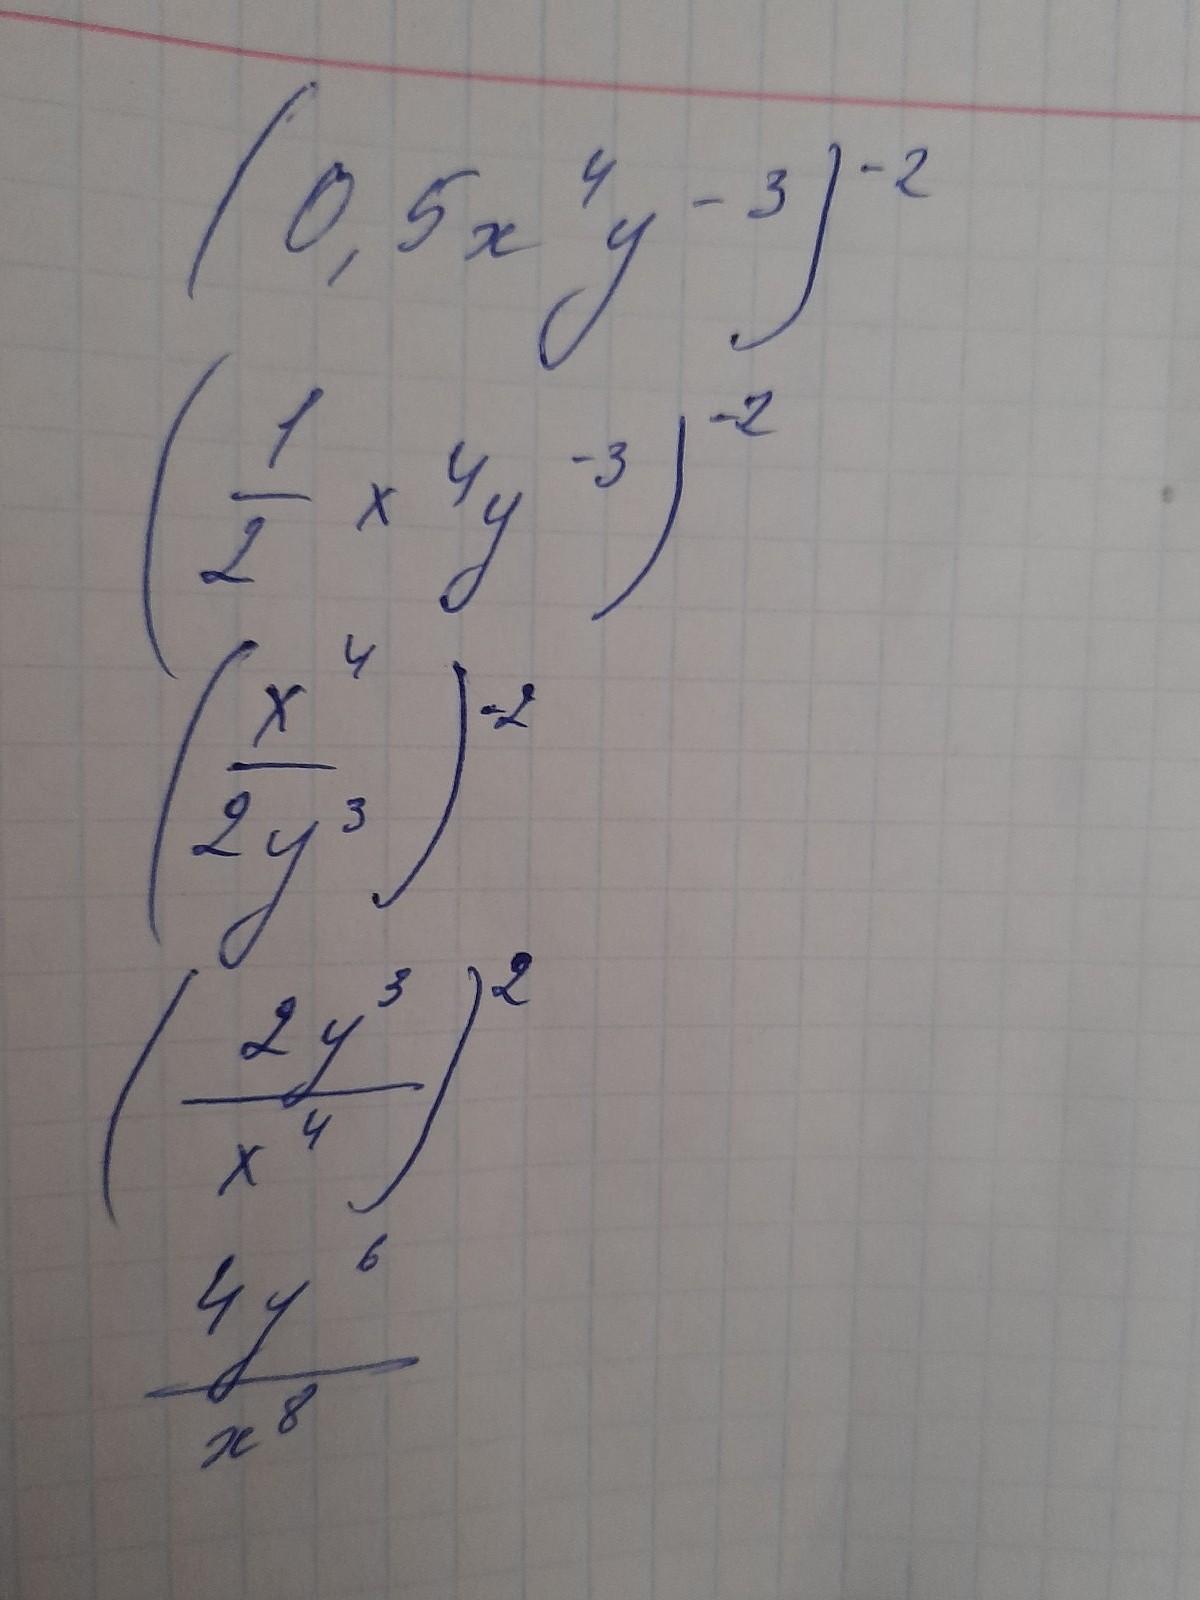 (0,5x⁴y⁻³)⁻²
(1/2 x⁴y⁻³)⁻²
(x⁴/2y³)⁻²
(2y³/x⁴)²
4y⁶/x⁸